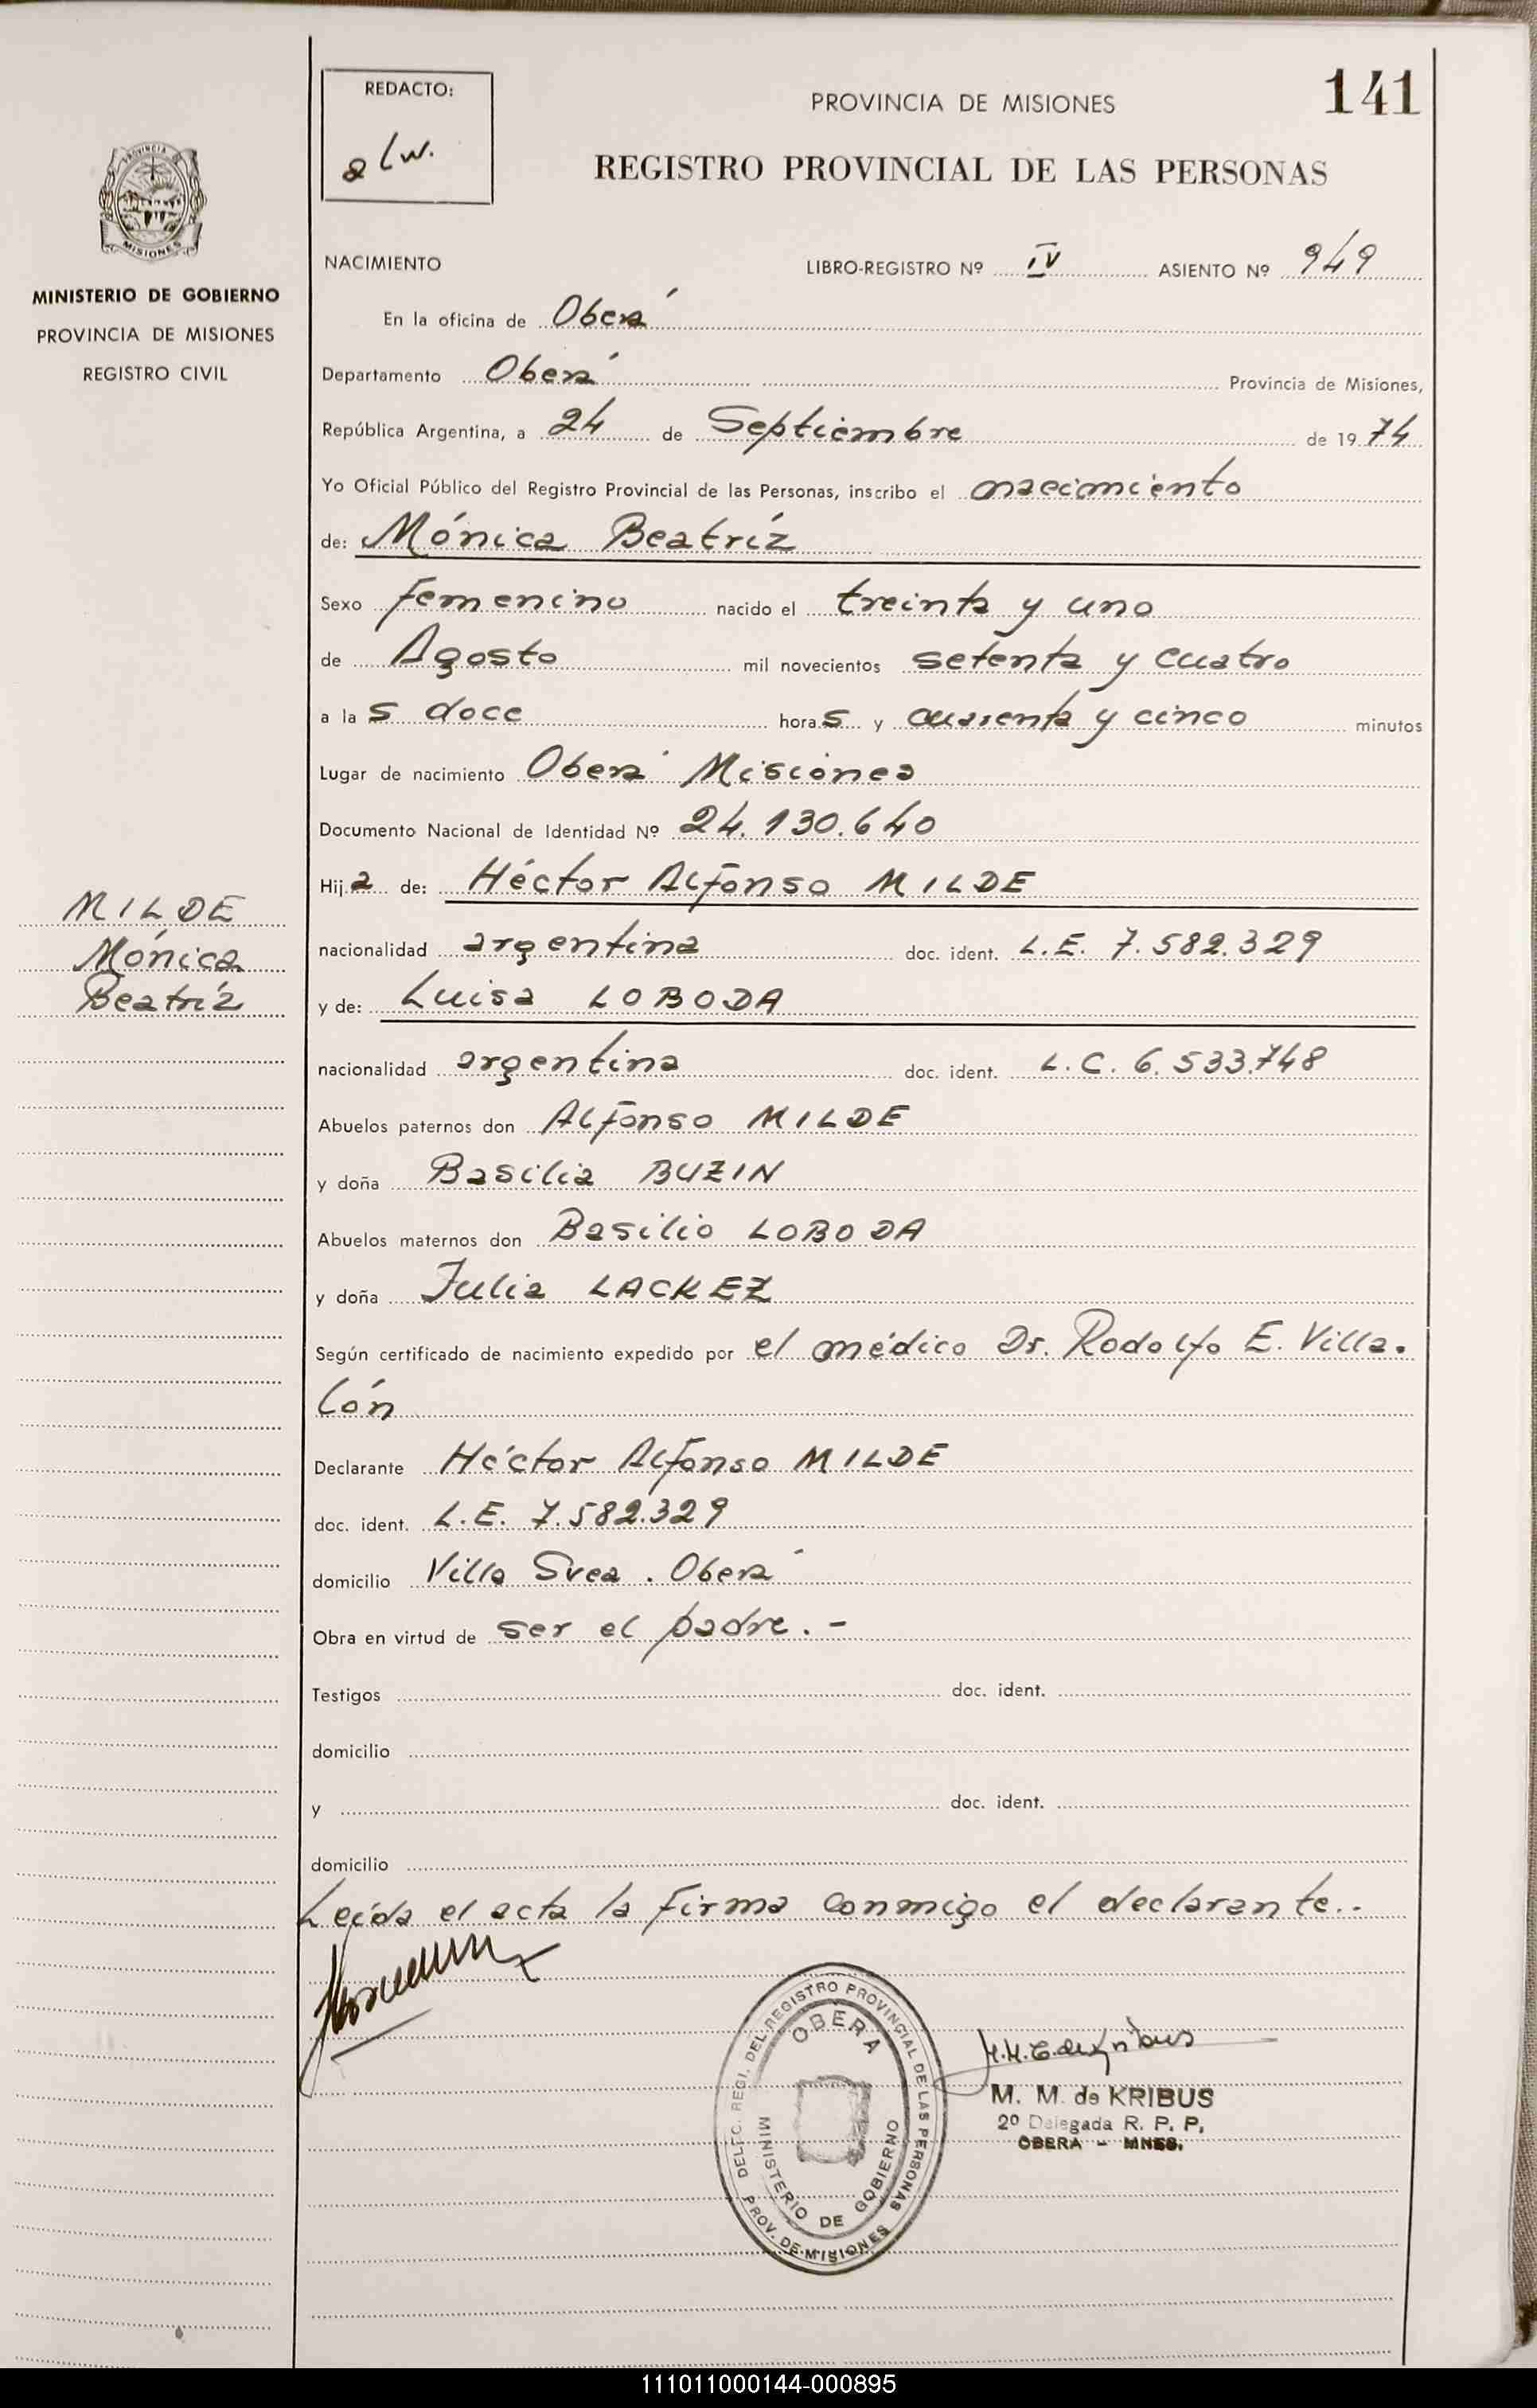 141
REDACTO:
PROVINCIA DE MISIONES
REGISTRO PROVINCIAL DE LAS PERSONAS
PROVINCIA DE
MISIONES
MINISTERIO DE GOBIERNO
PROVINCIA DE MISIONES
REGISTRO CIVIL
NACIMIENTO LIBRO-REGISTRO Nº IV ASIENTO Nº 949
En la oficina de Oberá
Departamento Oberá Provincia de Misiones,
República Argentina, a 24 de Septiembre de 1974
Yo Oficial Público del Registro Provincial de las Personas, inscribo el nacimiento
de: Mónica Beatríz
Sexo femenino nacido el treinta y uno
de Agosto mil novecientos setenta y cuatro
a las doce horas y cuarenta y cinco minutos
Lugar de nacimiento Oberá Misiones
Documento Nacional de Identidad Nº 24.130.640
Hija de: Héctor Alfonso MILDE
nacionalidad argentina doc. ident. L.E. 7.582.329
y de: Luisa LOBODA
nacionalidad argentina doc. ident. L.C. 6.533.748
Abuelos paternos don Alfonso MILDE
y doña Basilia BUZIN
Abuelos maternos don Basilio LOBODA
y doña Julia LACKEZ
Según certificado de nacimiento expedido por el médico Dr. Rodolfo E. Villa-
lón
Declarante Héctor Alfonso MILDE
doc. ident. L.E. 7.582.329
domicilio Villa Svea. Oberá
Obra en virtud de ser el padre.-
Testigos doc. ident.
domicilio
y doc. ident.
domicilio
Leída el acta la firma conmigo el declarante..
MILDE
Mónica
Beatríz
DELEG. REGI. DEL REGISTRO PROVINCIAL DE LAS PERSONAS
OBERA
MINISTERIO DE GOBIERNO
PROV. DE MISIONES
M. M. de KRIBUS
2º Delegada R. P. P.
OBERA - MNES.
111011000144-000895